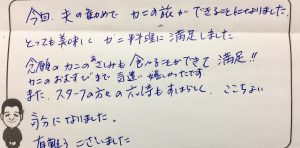 今回、夫の勧めで カニの旅ができることになりました。
とっても美味しく カニ料理に満足しました
念願のカニのおさしみも食べることができて 満足!!
カニのおすしまで 嬉しかったです。
また、スタッフの方々の 対応もすばらしく、ここちよい
気分になりました。
有難うございました